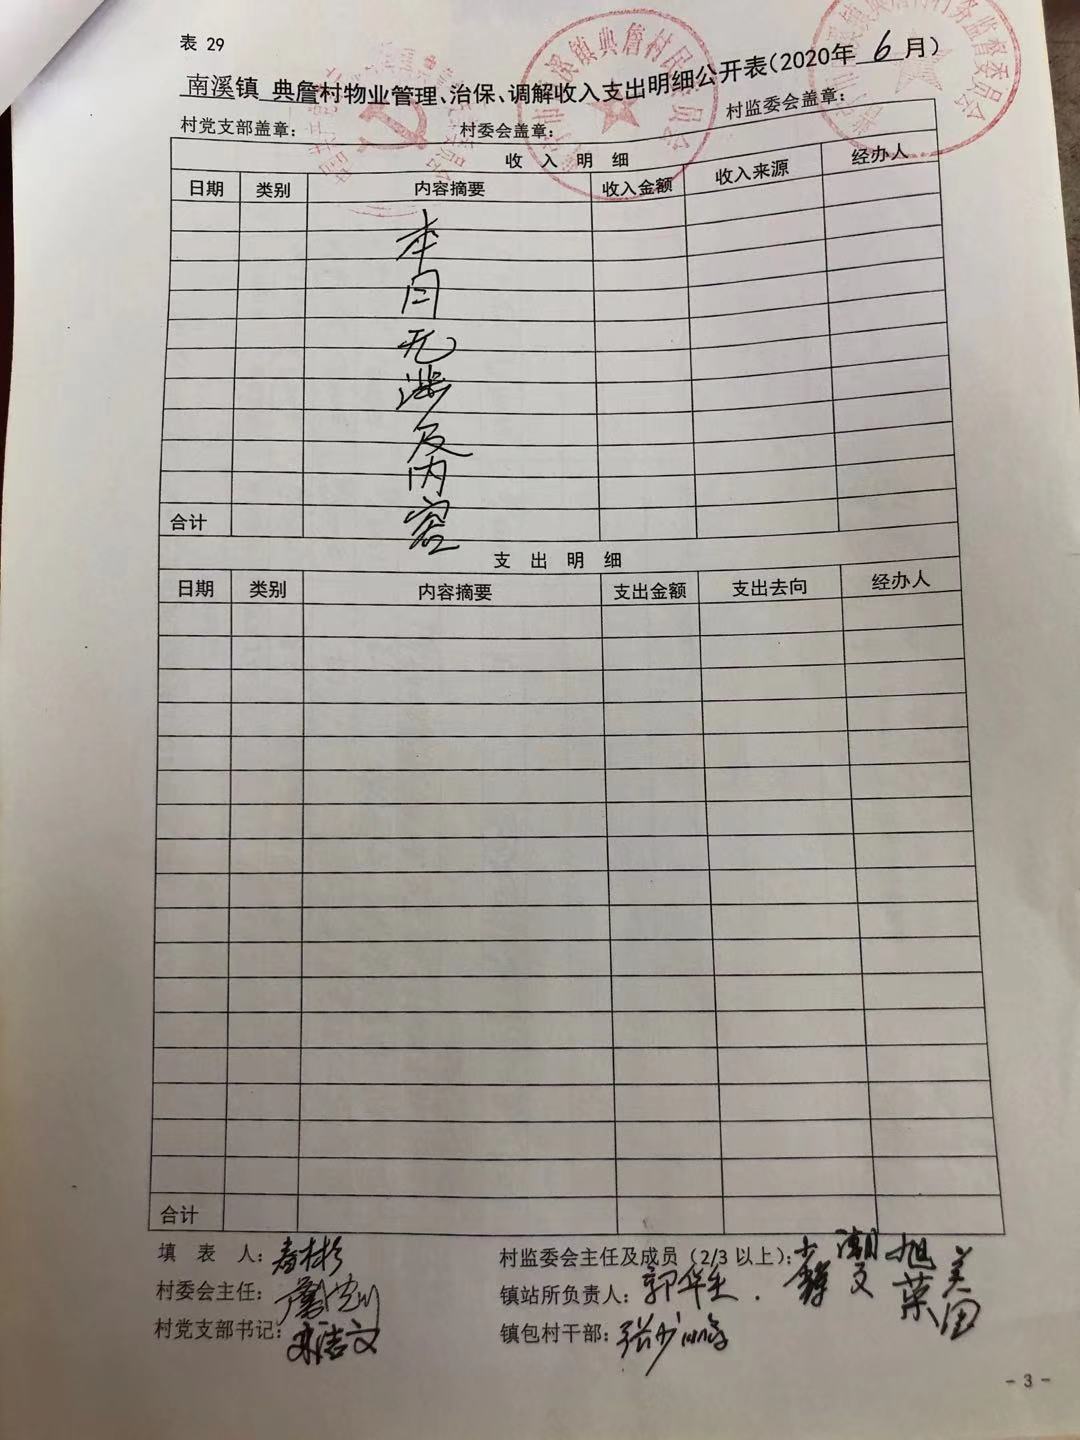 表 29
南溪镇 典詹村物业管理、治保、调解收入支出明细公开表(2020年 6 月)
村党支部盖章: 村委会盖章: 村监委会盖章:
收 入 明 细
日期 类别 内容摘要 收入金额 收入来源 经办人
本
月
无
涉
及
内
容
合计
支 出 明 细
日期 类别 内容摘要 支出金额 支出去向 经办人
合计
填 表 人:
村委会主任:
村党支部书记:
村监委会主任及成员(2/3 以上):
镇站所负责人:
镇包村干部:
- 3 -